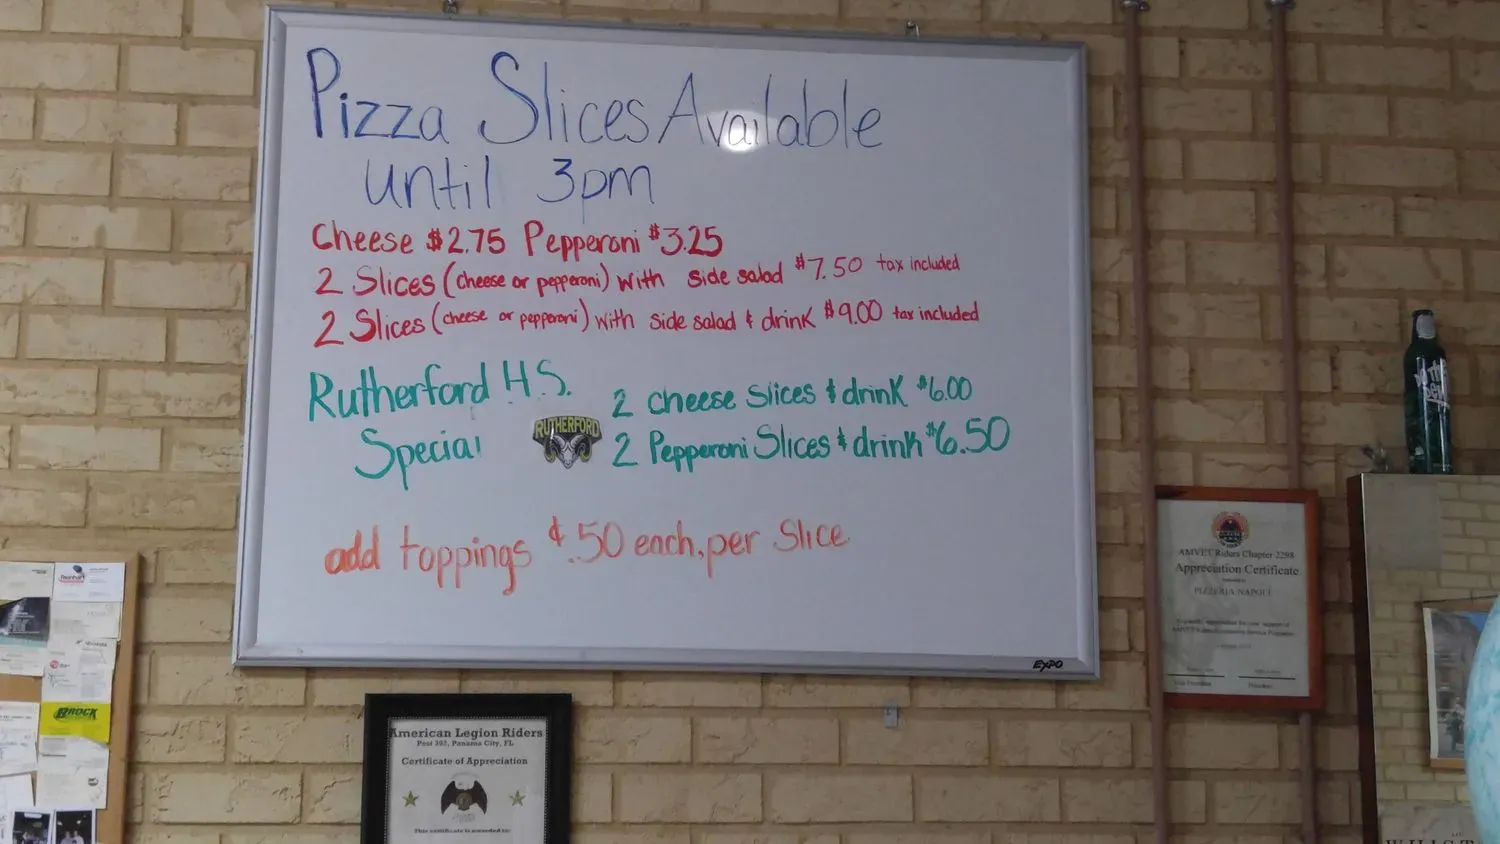 Pizza Slices Available
until 3pm
Cheese $2.75 Pepperoni $3.25
2 Slices (cheese or pepperoni) with side salad $7.50 tax included
2 Slices (cheese or pepperoni) with side salad & drink $9.00 tax included
Rutherford H.S.
Special
RUTHERFORD
2 cheese slices & drink $6.00
2 Pepperoni Slices & drink $6.50
add toppings $.50 each, per slice
EXPO
AMVET Riders Chapter 2298
Appreciation Certificate
PIZZERIA NAPOLI
American Legion Riders
Post 392, Panama City, FL
Certificate of Appreciation
This certificate is awarded to:
BROCK